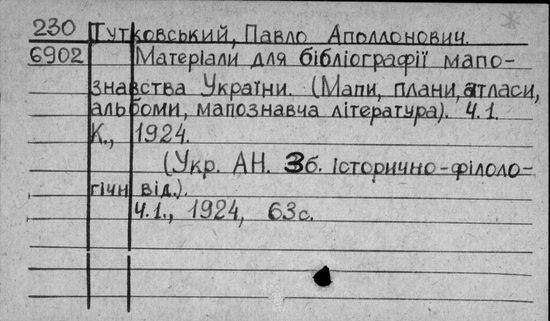 230 Тутковський, Павло Аполлонович.
6902 Матеріали для бібліографії мапо-
знавства України. (Мапи, плани, атласи,
альбоми, мапознавча література). Ч.1.
К., 1924.
(Укр. АН. Зб. Історично-філоло-
гічн від.).
Ч.1., 1924, 63с.